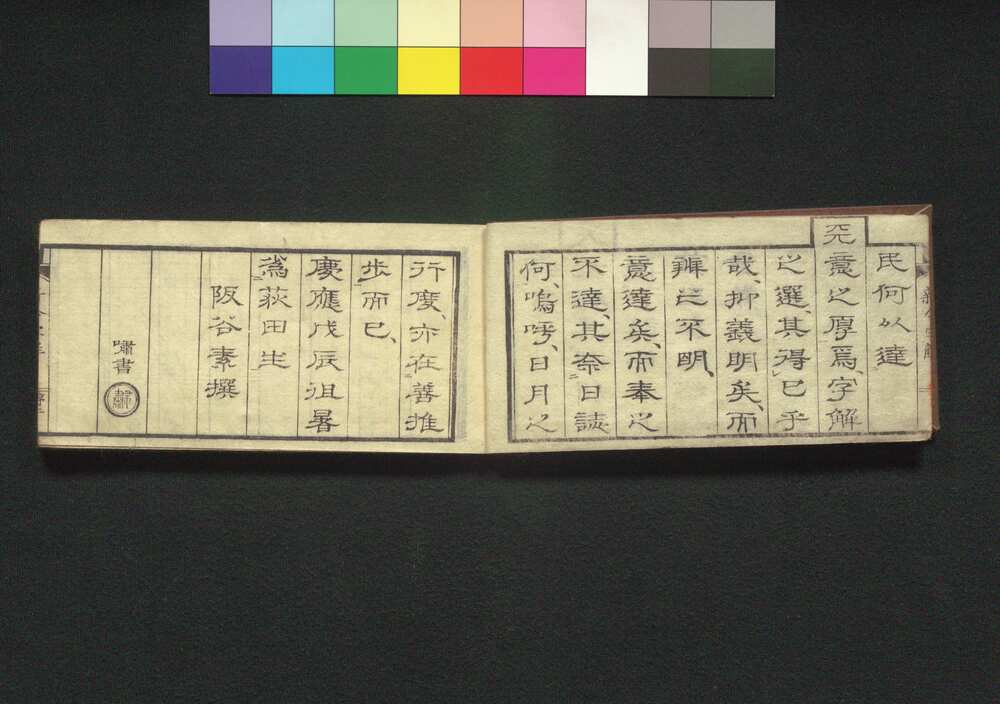 民何以達
意之厚焉、字解
之選、其得已乎
哉、抑義明矣、而
辨之不明、
意達矣、而奉之
不達、其奈日誌
何、嗚呼、日月之
行度、亦在善推
步而已、
慶應戊辰徂暑
為荻田生
阪谷素撰
嘯書